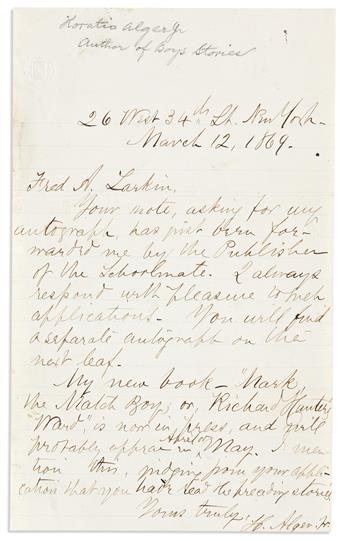 Horatio Alger Jr
Author of Boys Stories
26 West 34th St. New York.
March 12, 1869.
Fred A. Larkin,
Your note, asking for my
autograph, has just been for-
warded me by the Publisher
of the Schoolmate. I always
respond with pleasure to such
applications. You will find
a separate autograph on the
next leaf.
My new book - "Mark,
the Match Boy; or, Richard Hunter's
Ward", is now in press, and will
probably appear in April or May. I men-
tion this, judging from your appli-
cation that you have read the preceding stories.
Yours truly,
H. Alger, Jr.